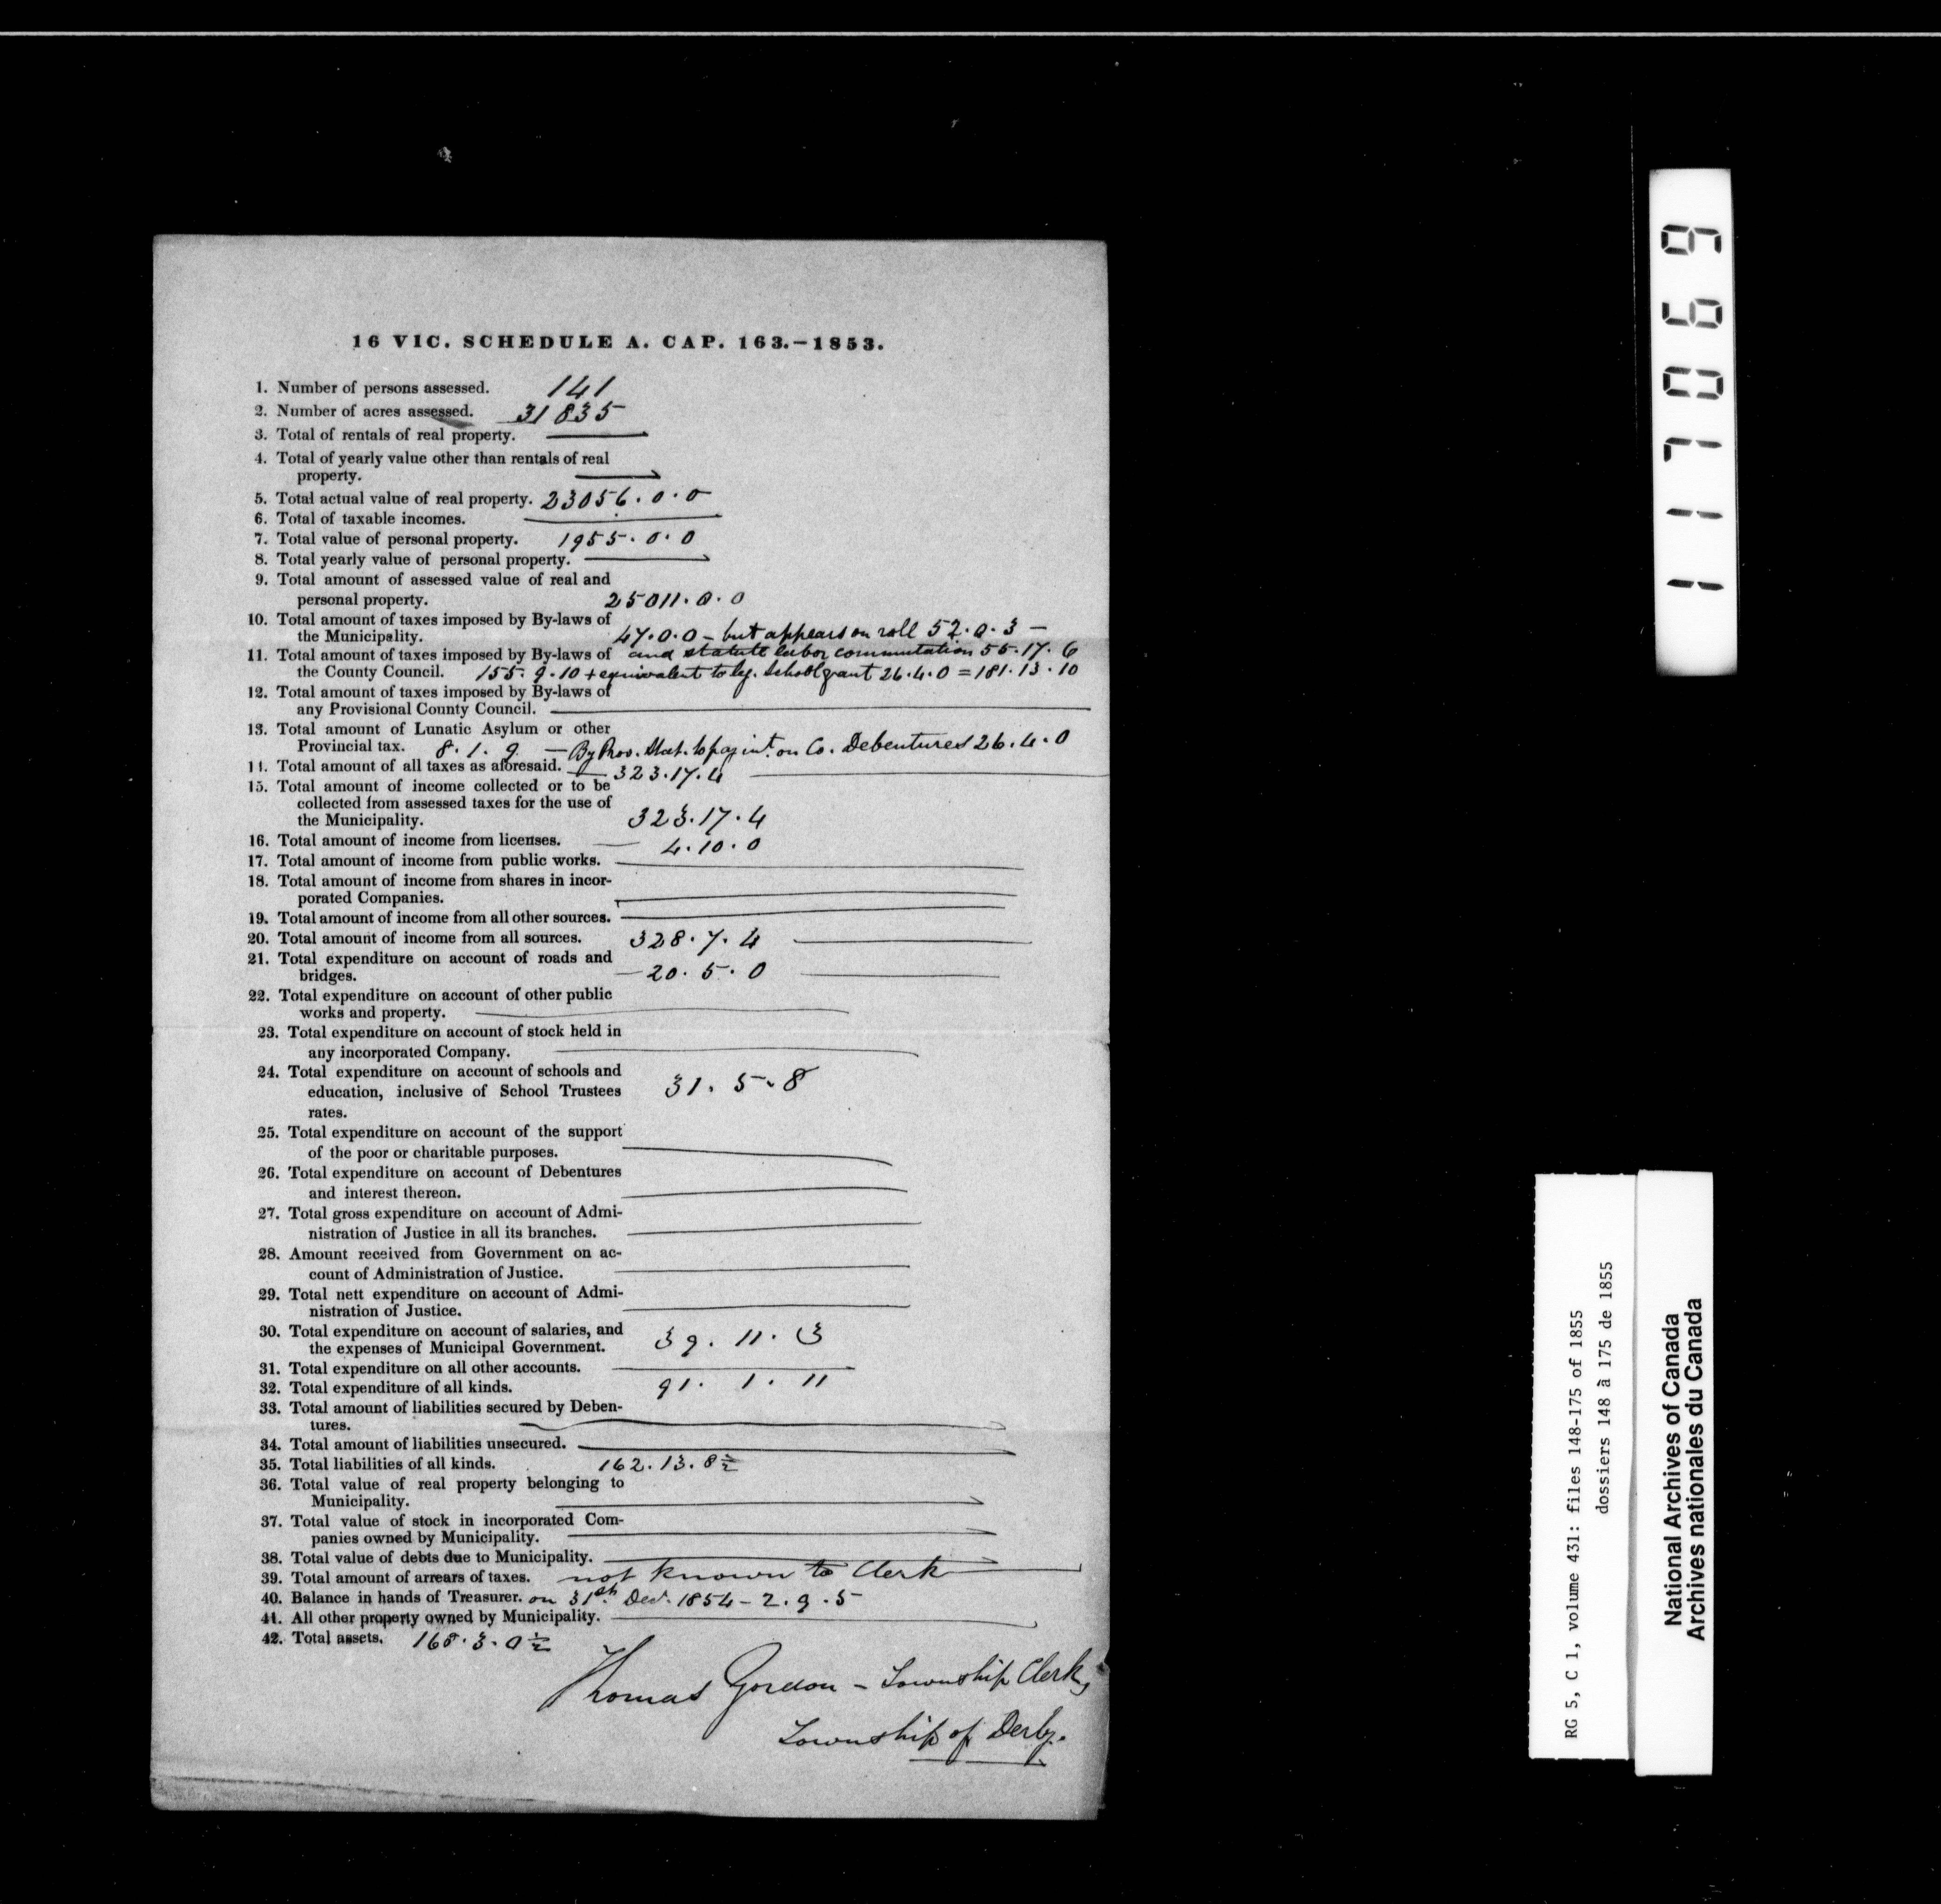 16 VIC. SCHEDULE A. CAP. 163.—1853.
1. Number of persons assessed. 141
2. Number of acres assessed. 31835
3. Total of rentals of real property.
4. Total of yearly value other than rentals of real
property.
5. Total actual value of real property. 23056.0.0
6. Total of taxable incomes.
7. Total value of personal property. 1955.0.0
8. Total yearly value of personal property.
9. Total amount of assessed value of real and
personal property. 25011.0.0
10. Total amount of taxes imposed by By-laws of
the Municipality. 47.0.0 – but appears on roll 52.0.3 –
11. Total amount of taxes imposed by By-laws of and statute labor commutation 55.17.6
the County Council. 155.9.10 + equivalent to leg. School grant 26.4.0 = 181.13.10
12. Total amount of taxes imposed by By-laws of
any Provisional County Council.
13. Total amount of Lunatic Asylum or other
Provincial tax. 8.1.9 — By Prov. Stat. to pay int. on Co. Debentures 26.4.0
14. Total amount of all taxes as aforesaid. 323.17.4
15. Total amount of income collected or to be
collected from assessed taxes for the use of
the Municipality. 323.17.4
16. Total amount of income from licenses. 4.10.0
17. Total amount of income from public works.
18. Total amount of income from shares in incor-
porated Companies.
19. Total amount of income from all other sources.
20. Total amount of income from all sources. 328.7.4
21. Total expenditure on account of roads and
bridges. 20.5.0
22. Total expenditure on account of other public
works and property.
23. Total expenditure on account of stock held in
any incorporated Company.
24. Total expenditure on account of schools and
education, inclusive of School Trustees 31.5.8
rates.
25. Total expenditure on account of the support
of the poor or charitable purposes.
26. Total expenditure on account of Debentures
and interest thereon.
27. Total gross expenditure on account of Admi-
nistration of Justice in all its branches.
28. Amount received from Government on ac-
count of Administration of Justice.
29. Total nett expenditure on account of Admi-
nistration of Justice.
30. Total expenditure on account of salaries, and
the expenses of Municipal Government. 39.11.3
31. Total expenditure on all other accounts.
32. Total expenditure of all kinds. 91.1.11
33. Total amount of liabilities secured by Deben-
tures.
34. Total amount of liabilities unsecured.
35. Total liabilities of all kinds. 162.13.8½
36. Total value of real property belonging to
Municipality.
37. Total value of stock in incorporated Com-
panies owned by Municipality.
38. Total value of debts due to Municipality.
39. Total amount of arrears of taxes. not known to Clerk
40. Balance in hands of Treasurer. on 31st. Decr. 1854 – 2.9.5
41. All other property owned by Municipality.
42. Total assets. 168.3.0½
Thomas Gordon – Township Clerk,
Township of Derby.
117069
RG 5, C 1, volume 431: files 148-175 of 1855
dossiers 148 à 175 de 1855
National Archives of Canada
Archives nationales du Canada